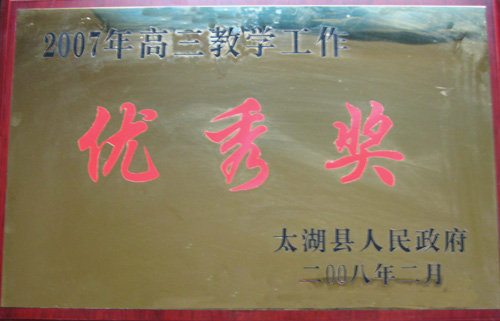 2007年高三教学工作
优秀奖
太湖县人民政府
二00八年二月